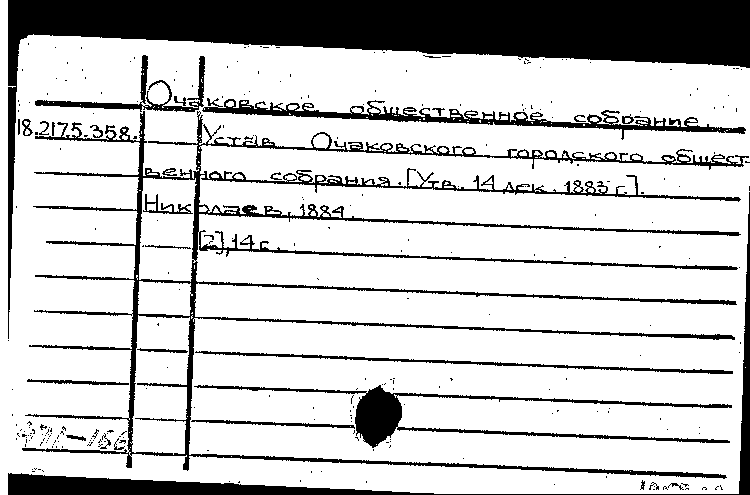 Очаковское общественное собрание.
18.217.5.358. Устав Очаковского городского общест-
венного собрания. [Утв. 14 дек. 1883 г.].
Николаев, 1884.
[2], 14 с.